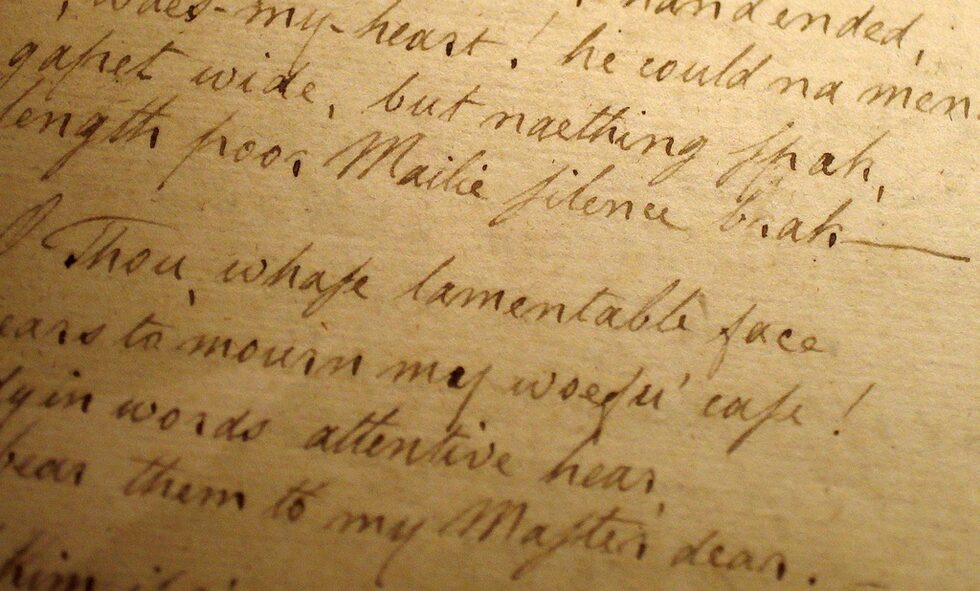 hand ended,
waes-my-heart! he could na men
gapet wide, but naething ſpak,
length poor Mailie ſilence brak—
O Thou, whaſe lamentable face
ears to mourn my woefu' caſe!
dyin words attentive hear,
bear them to my Maſter dear. —
him